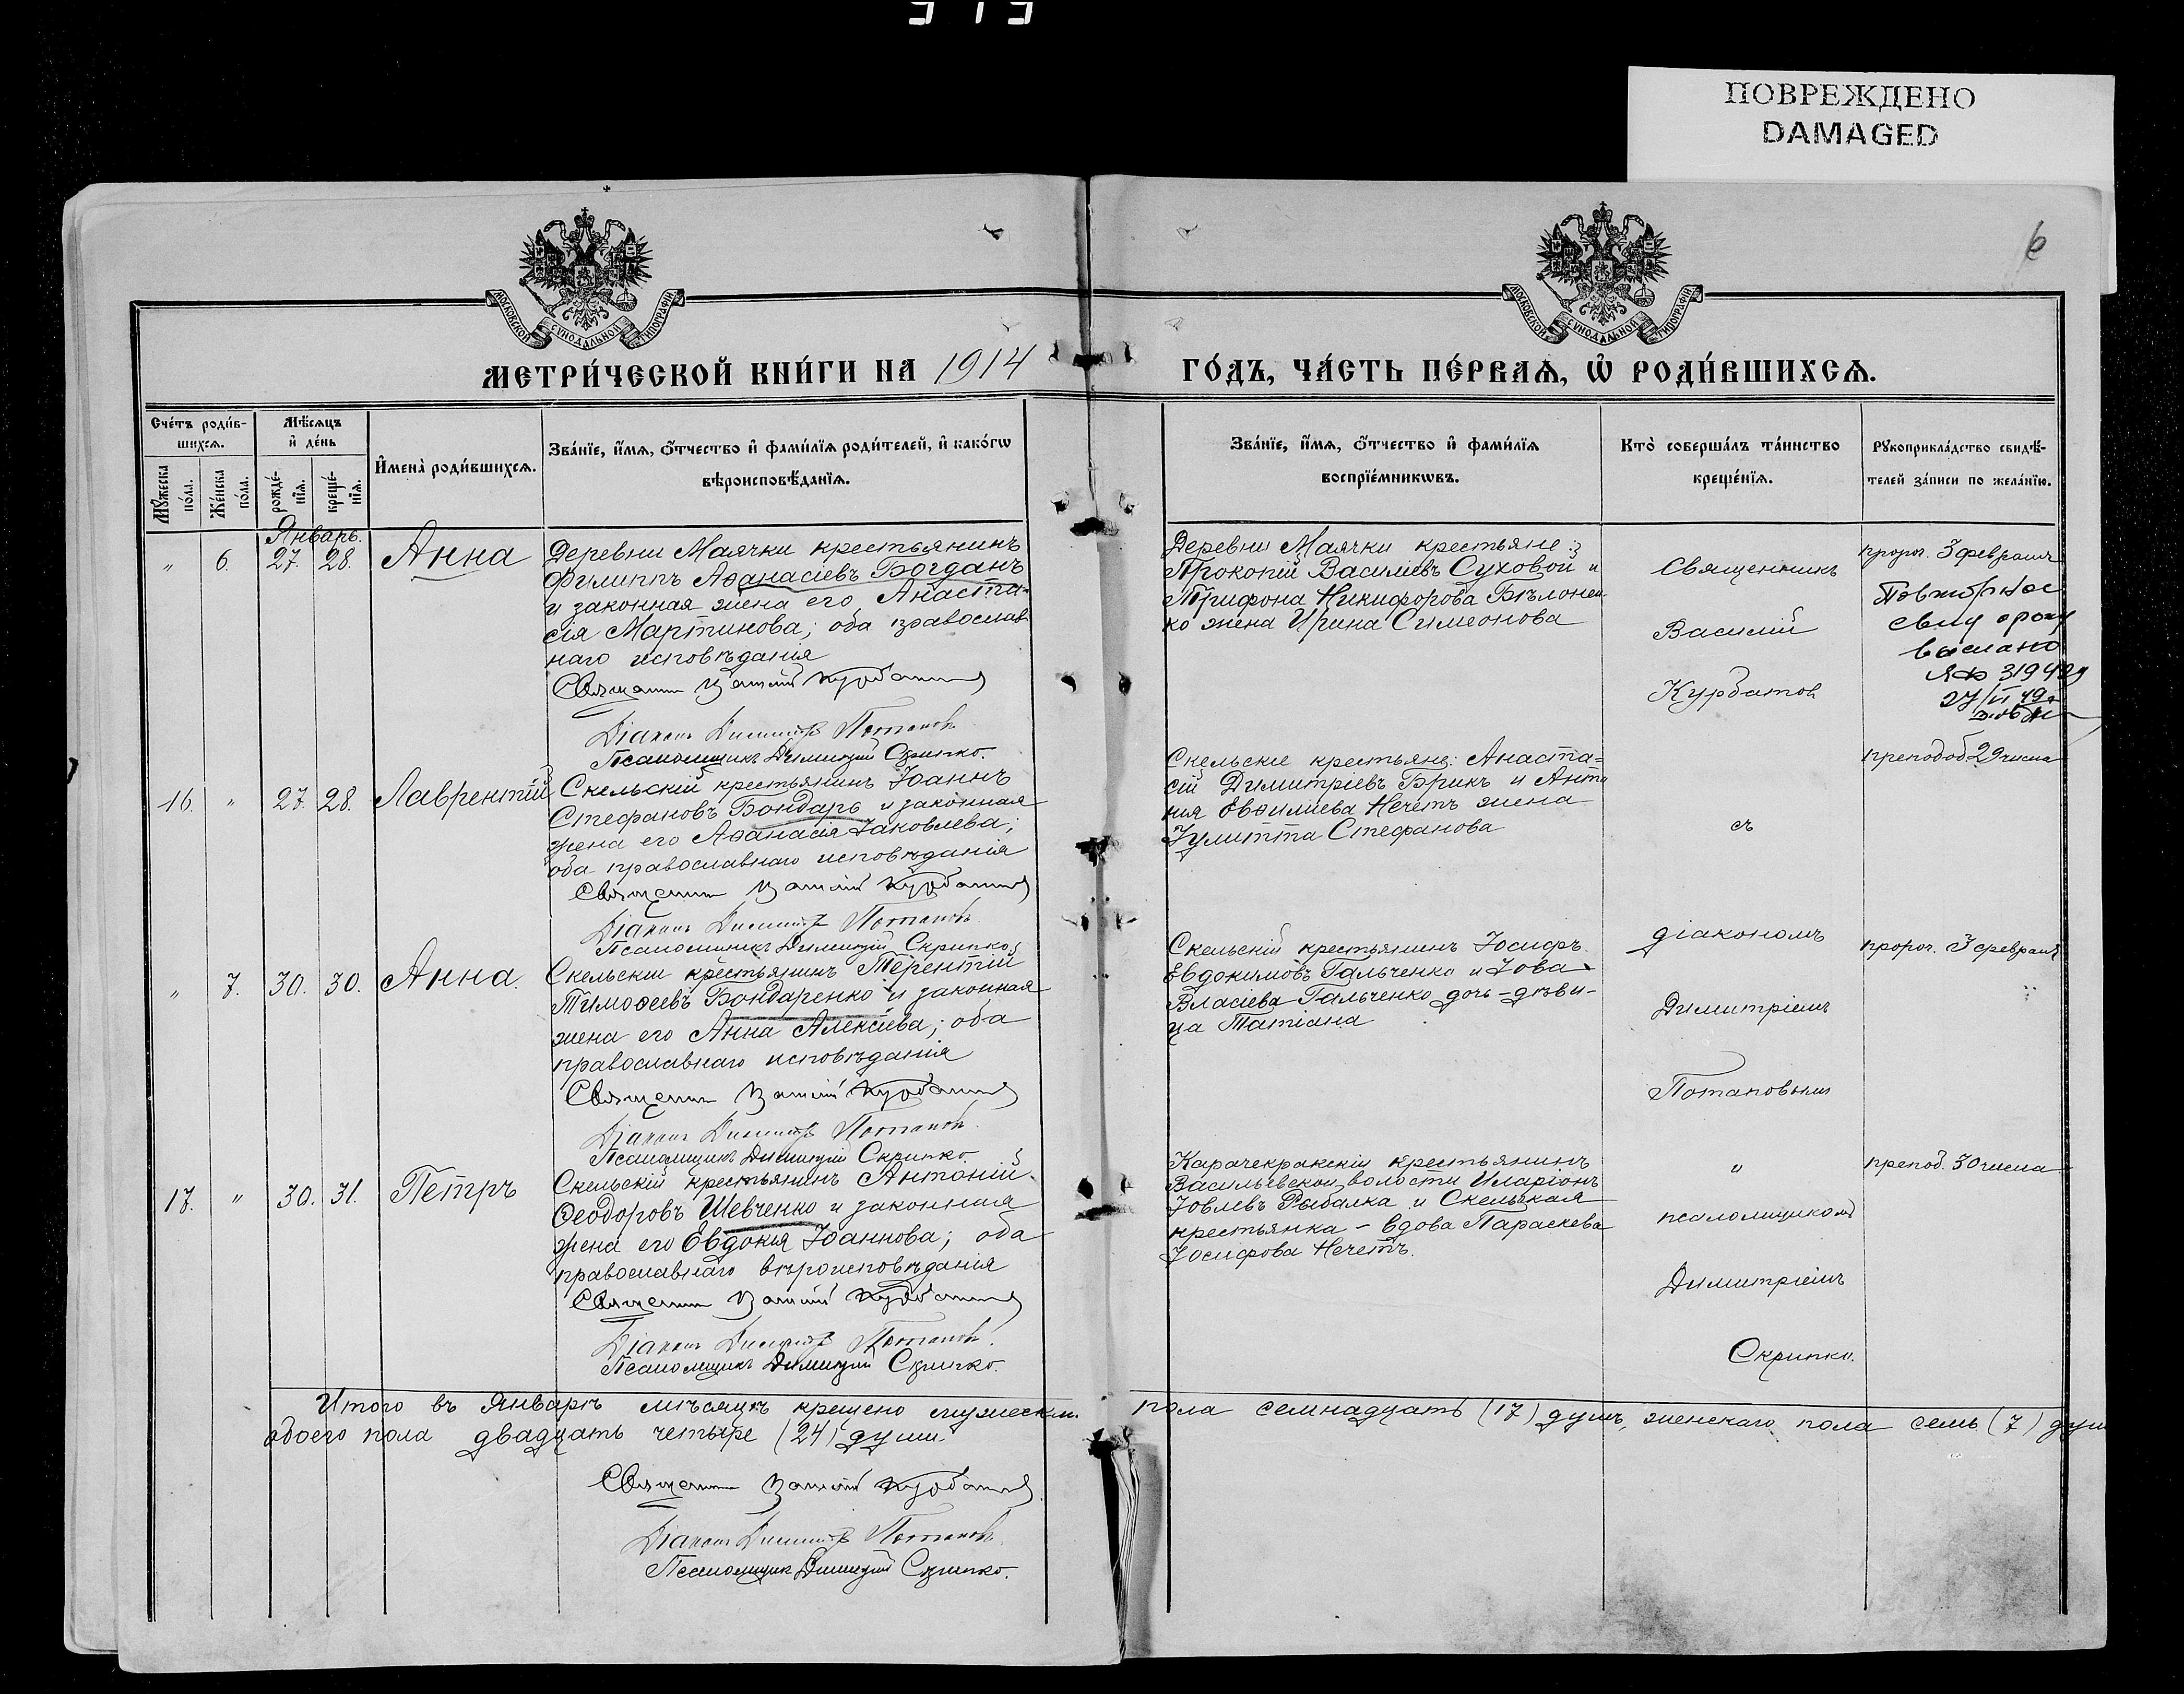 ПОВРЕЖДЕНО
DAMAGED
6
МОСКОВСКОЙ СУНОДАЛЬНОЙ ТИПОГРАФІИ
МОСКОВСКОЙ СУНОДАЛЬНОЙ ТИПОГРАФІИ
МЕТРИ́ЧЕСКОЙ КНИ́ГИ НА 1914
ГО́ДЪ, ЧА́СТЬ ПЕ́РВАѦ, Ѡ҆ РОДИ́ВШИХСѦ.
Сче́тъ роди́в-
шихсѧ.
Мꙋ́жеска по́ла.
Же́нска по́ла.
Мѣ́сѧцъ
и҆ де́нь
рожде́-
нїѧ.
креще́-
нїѧ.
И҆мена̀ роди́вшихсѧ.
Зва́нїе, и҆́мѧ, ѻ҆́тчество и҆ фами́лїѧ роди́телей, и҆ како́гѡ
вѣроисповѣ́данїѧ.
Зва́нїе, и҆́мѧ, ѻ҆́тчество и҆ фами́лїѧ
воспрїе́мникѡвъ.
Кто̀ соверша́лъ та́инство
креще́нїѧ.
Рꙋкоприкла́дство свидѣ́-
телей за́писи по жела́нїю.
Январь.
" 6. 27. 28. Анна
Деревни Маячки крестьянинъ
Филиппъ Аѳанасіевъ Богданъ
и законная жена его Анаста-
сія Мартинова; оба православ
наго исповѣданія
Священникъ Василій Курбатовъ
Діаконъ Димитрій Потаповъ
Псаломщикъ Димитрій Скрипко.
Деревни Маячки крестьяне:
Прокопій Василіевъ Суховой и
Трифона Никифорова Бѣлонен-
ко жена Ирина Симеонова
Священникъ
Василій
Курбатовъ
пророч. 3 февраля
Повторное
выслано
27/II 49
16. " 27. 28. Лаврентій
Скельскій крестьянинъ Іоаннъ
Стефановъ Бондарь и законная
жена его Аѳанасія Іаковлева;
оба православнаго исповѣданія
Священникъ Василій Курбатовъ
Діаконъ Димитрій Потаповъ
Псаломщикъ Димитрій Скрипко.
Скельскіе крестьяне: Анаста-
сій Димитріевъ Брикъ и Анто
нія Евѳиміева Нечетъ жена
Іулитта Стефанова
съ
преподоб. 29 числа
" 7. 30. 30. Анна.
Скельскій крестьянинъ Терентій
Тимоѳеевъ Бондаренко и законная
жена его Анна Алексіева; оба
православнаго исповѣданія
Священникъ Василій Курбатовъ
Діаконъ Димитрій Потаповъ
Псаломщикъ Димитрій Скрипко
Скельскій крестьянинъ Іосифъ
Евдокимовъ Гальченко и Іова
Власіева Гальченко дочь-дѣви-
ца Татіана
діакономъ
Димитріемъ
Потаповымъ
пророч. 3 февраля
17. " 30. 31. Петръ
Скельскій крестьянинъ Антоній
Ѳеодоровъ Шевченко и законная
жена его Евдокія Іоаннова; оба
православнаго вѣроисповѣданія
Священникъ Василій Курбатовъ
Діаконъ Димитрій Потаповъ.
Псаломщикъ Димитрій Скрипко.
Карачекракскій крестьянинъ
Васильевской волости Иларіонъ
Іовлевъ Рыбалка и Скельская
крестьянка - вдова Параскева
Іосифова Нечетъ.
"
псаломщикомъ
Димитріемъ
Скрипко.
препод. 30 числа
Итого въ Январѣ мѣсяцѣ крещено мужеска. пола семнадцать (17) душъ, женскаго пола семь (7) душ
обоего пола двадцать четыре (24) души.
Священникъ Василій Курбатовъ.
Діаконъ Димитрій Потаповъ.
Псаломщик Димитрій Скрипко.